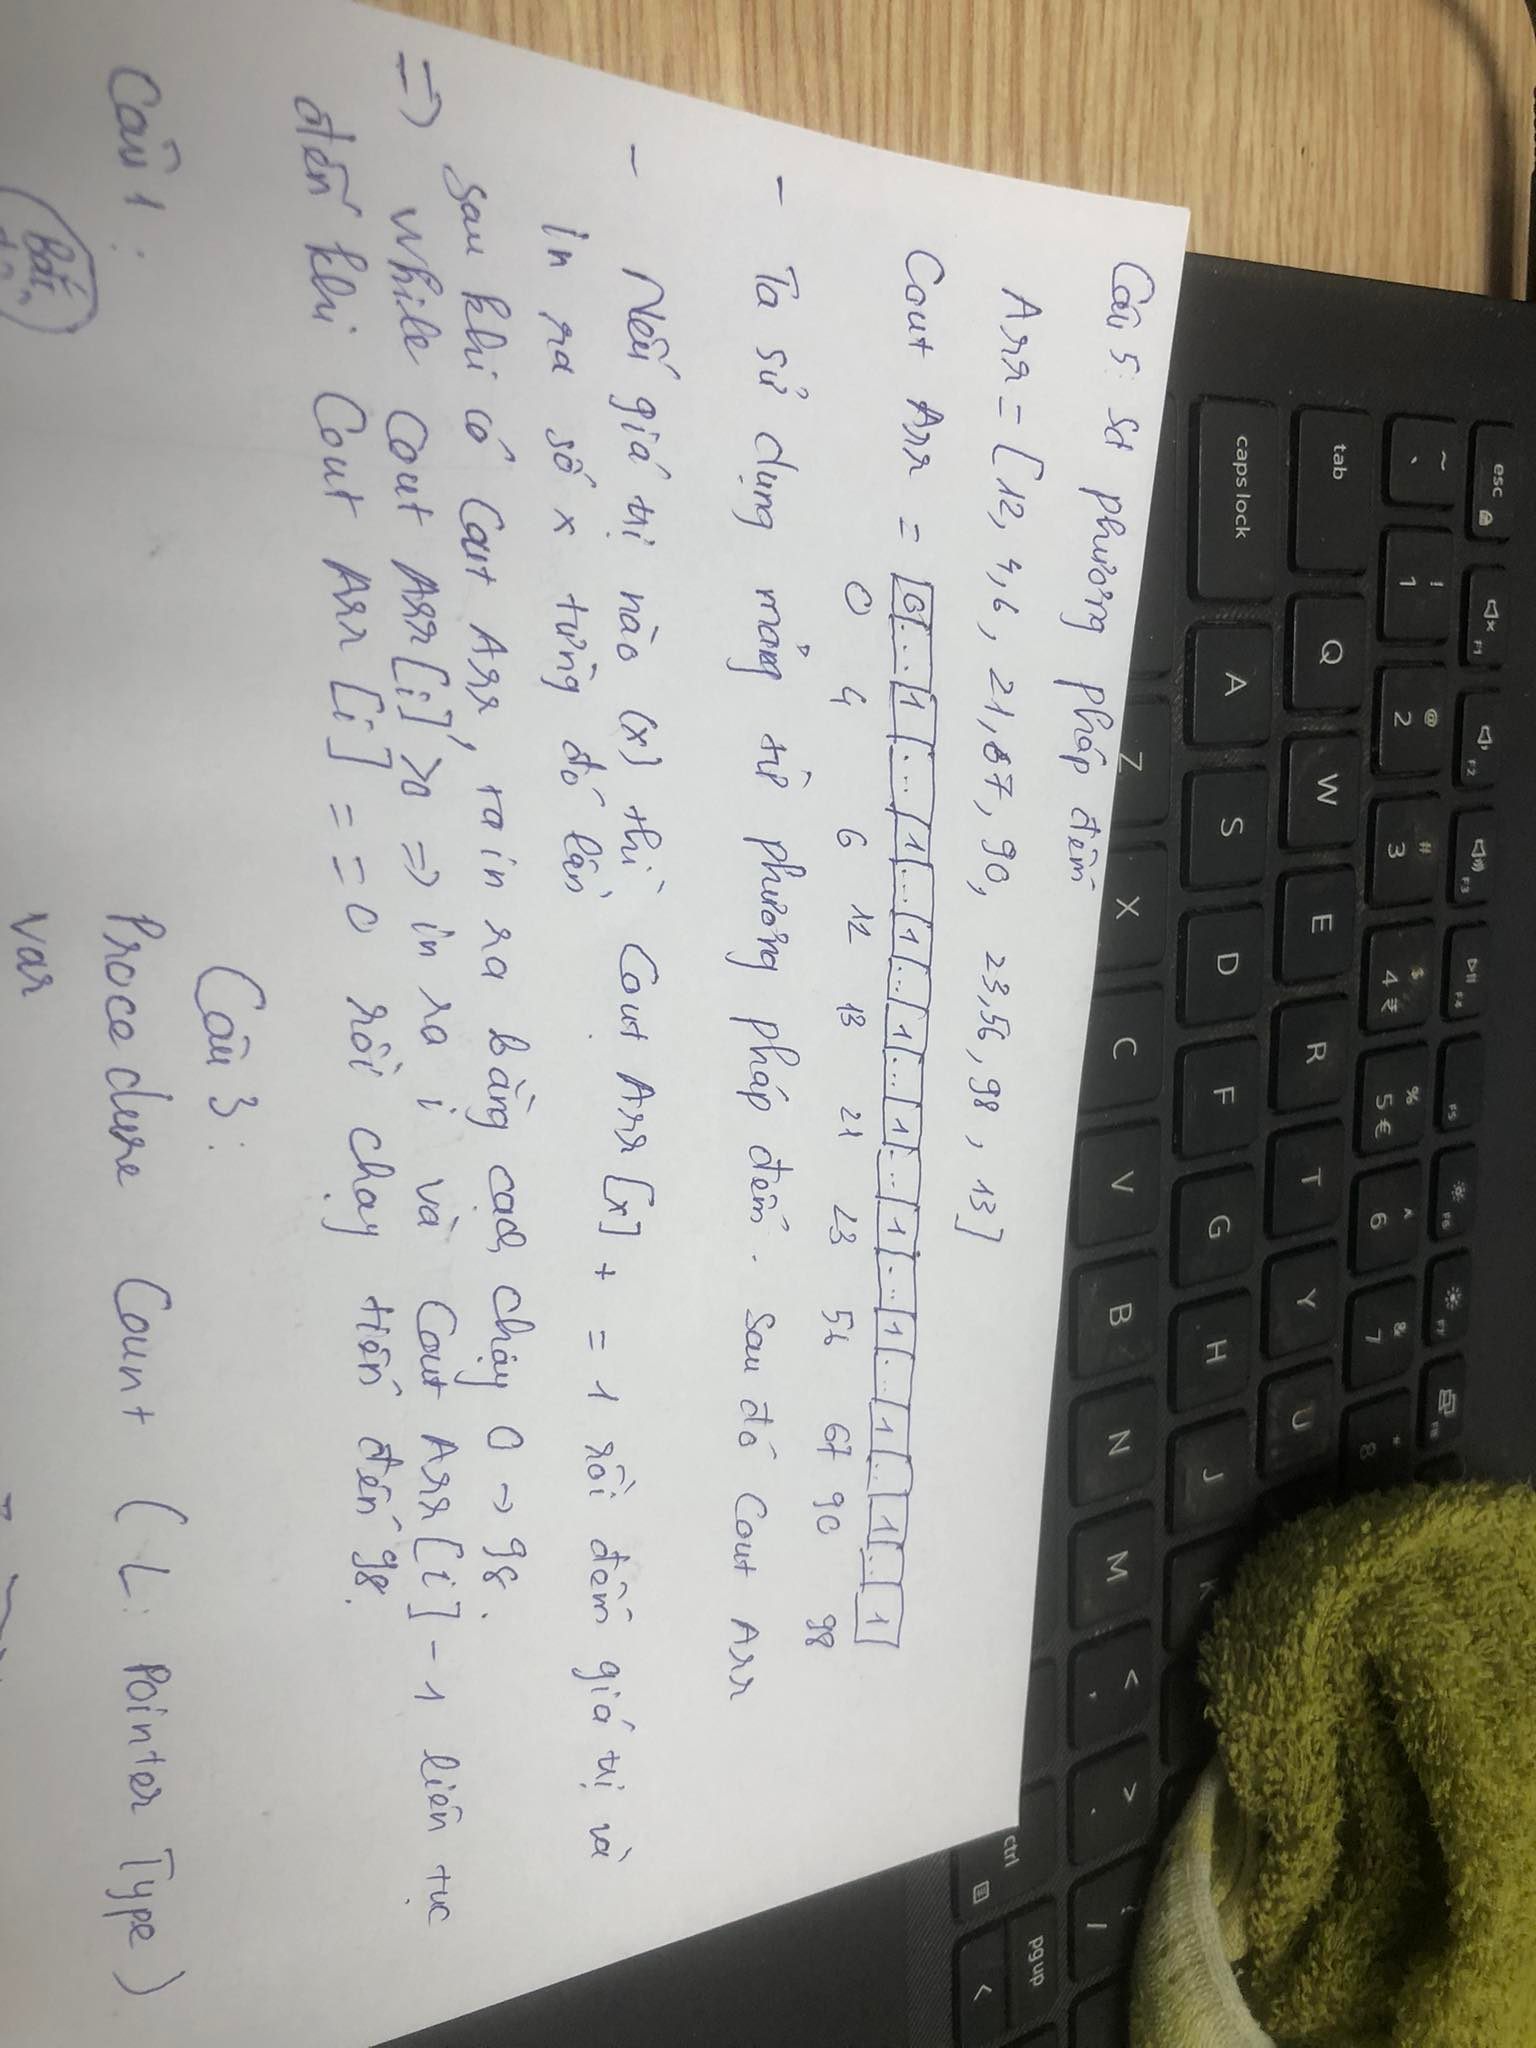 esc F1 F2 F3 F4 F5 F6 F7 F8
~ ` ! 1 @ 2 # 3 $ 4 ₹ % 5 € ^ 6 & 7 * 8
tab Q W E R T Y U
caps lock A S D F G H J K
Z X C V B N M < , > . /
ctrl pg up <
Câu 5: Sd phương pháp đếm
Arr = [12, 4, 6, 21, 67, 90, 23, 56, 98, 13]
Cout Arr = 0 ... 1 ... 1 ... 1 ... 1 ... 1 ... 1 ... 1 ... 1 .. 1 ... 1
0 4 6 12 13 21 23 56 67 90 98
- Ta sử dụng mảng từ phương pháp đếm. Sau đó Cout Arr
- Nếu giá trị nào (x) thì Cout Arr [x] + = 1 rồi đếm giá trị và
in ra số x từng đó lần
sau khi có Cout Arr, ta in ra bằng cách chạy 0 → 98.
=> While Cout Arr [i] >0 => in ra i và Cout Arr [i] - 1 liên tục
đến khi Cout Arr [i] = = 0 rồi chạy tiến đến 98.
Câu 3:
Câu 1 :
Procedure Count ( L: Pointer Type )
Bắt
var